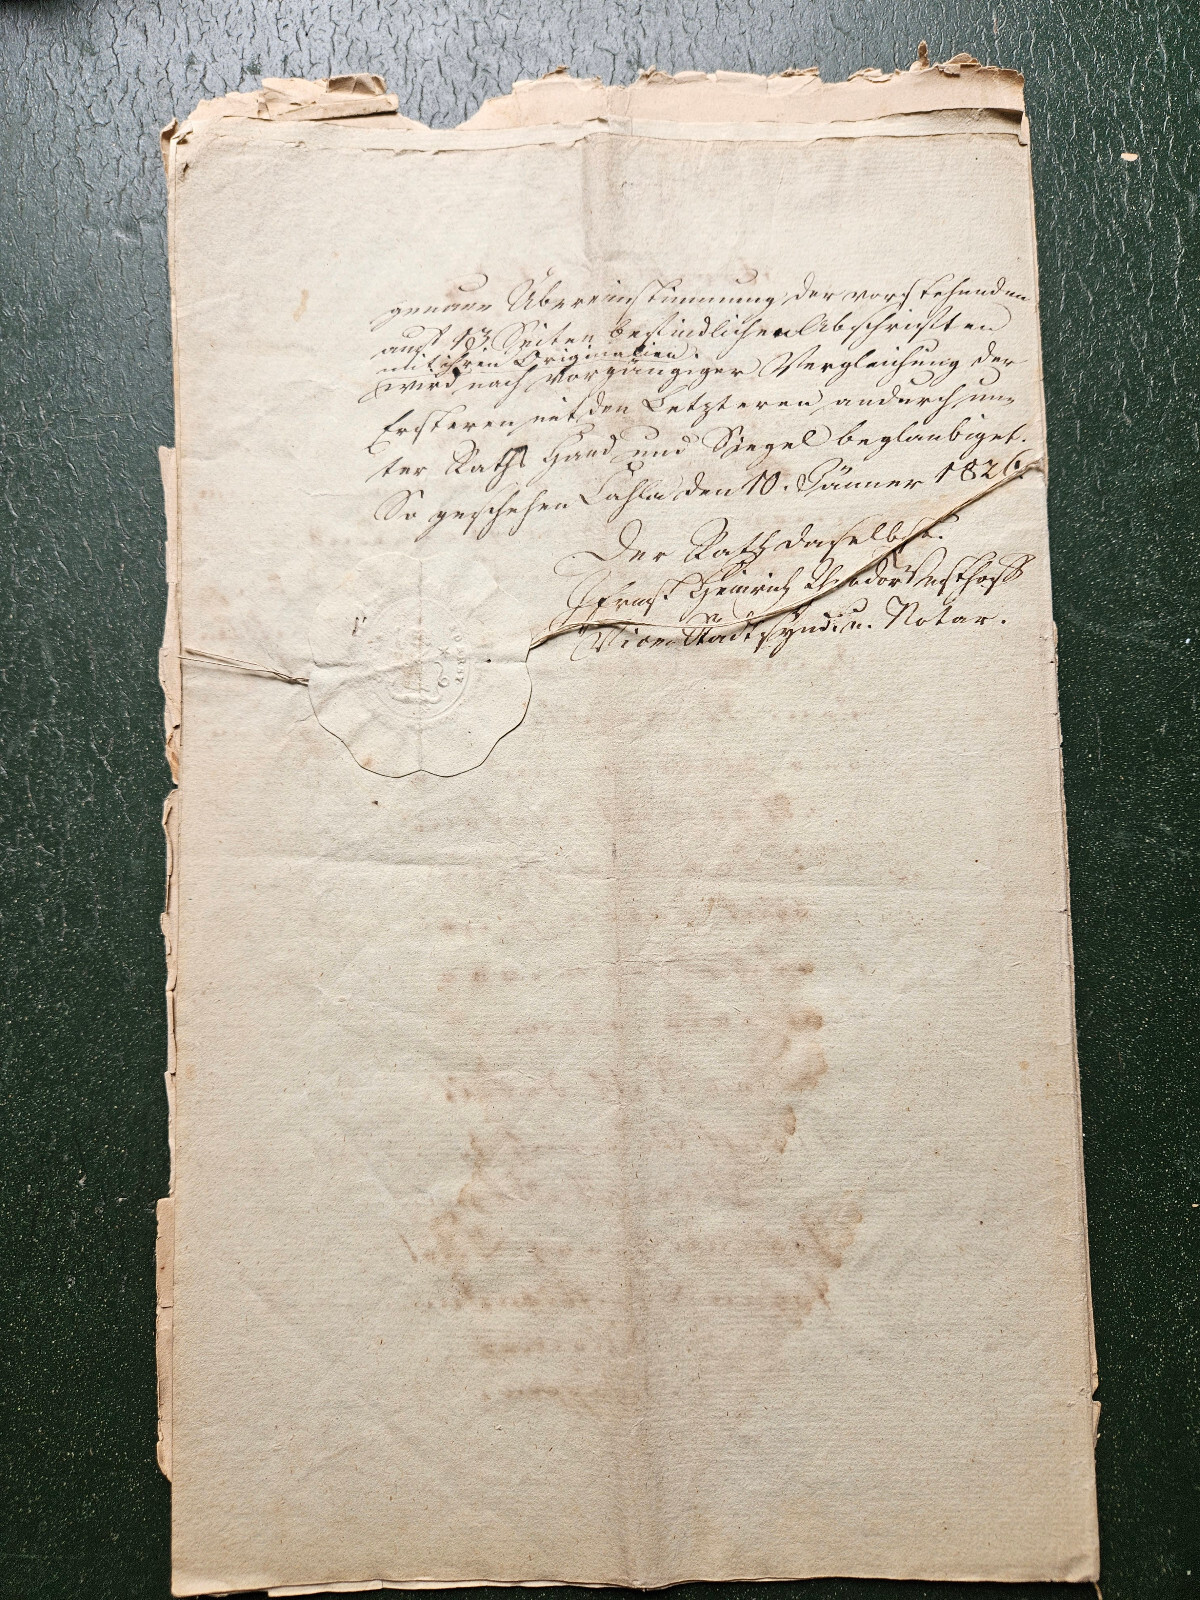 genaue Übereinstimmung der vorstehenden
auf 13 Seiten befindlichen Abschriften
mit ihren Originalien.
wird nach vorgängiger Vergleichung der
Ersteren mit den Letzteren andurch un-
ter Raths Hand und Siegel beglaubiget.
So geschehen Cahla den 10. Jänner 1826.
Der Rath daselbst.
Ernst Heinrich Theodor
Vice Stadtsynd. u. Notar.